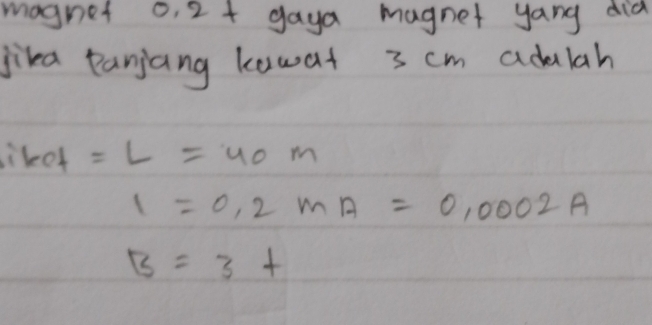 magnet 0,2 t gaya magnet yang dia
jika panjang kawat 3 cm adalah
iket = L = 40 m
I = 0,2 mA = 0,0002 A
B = 3 t